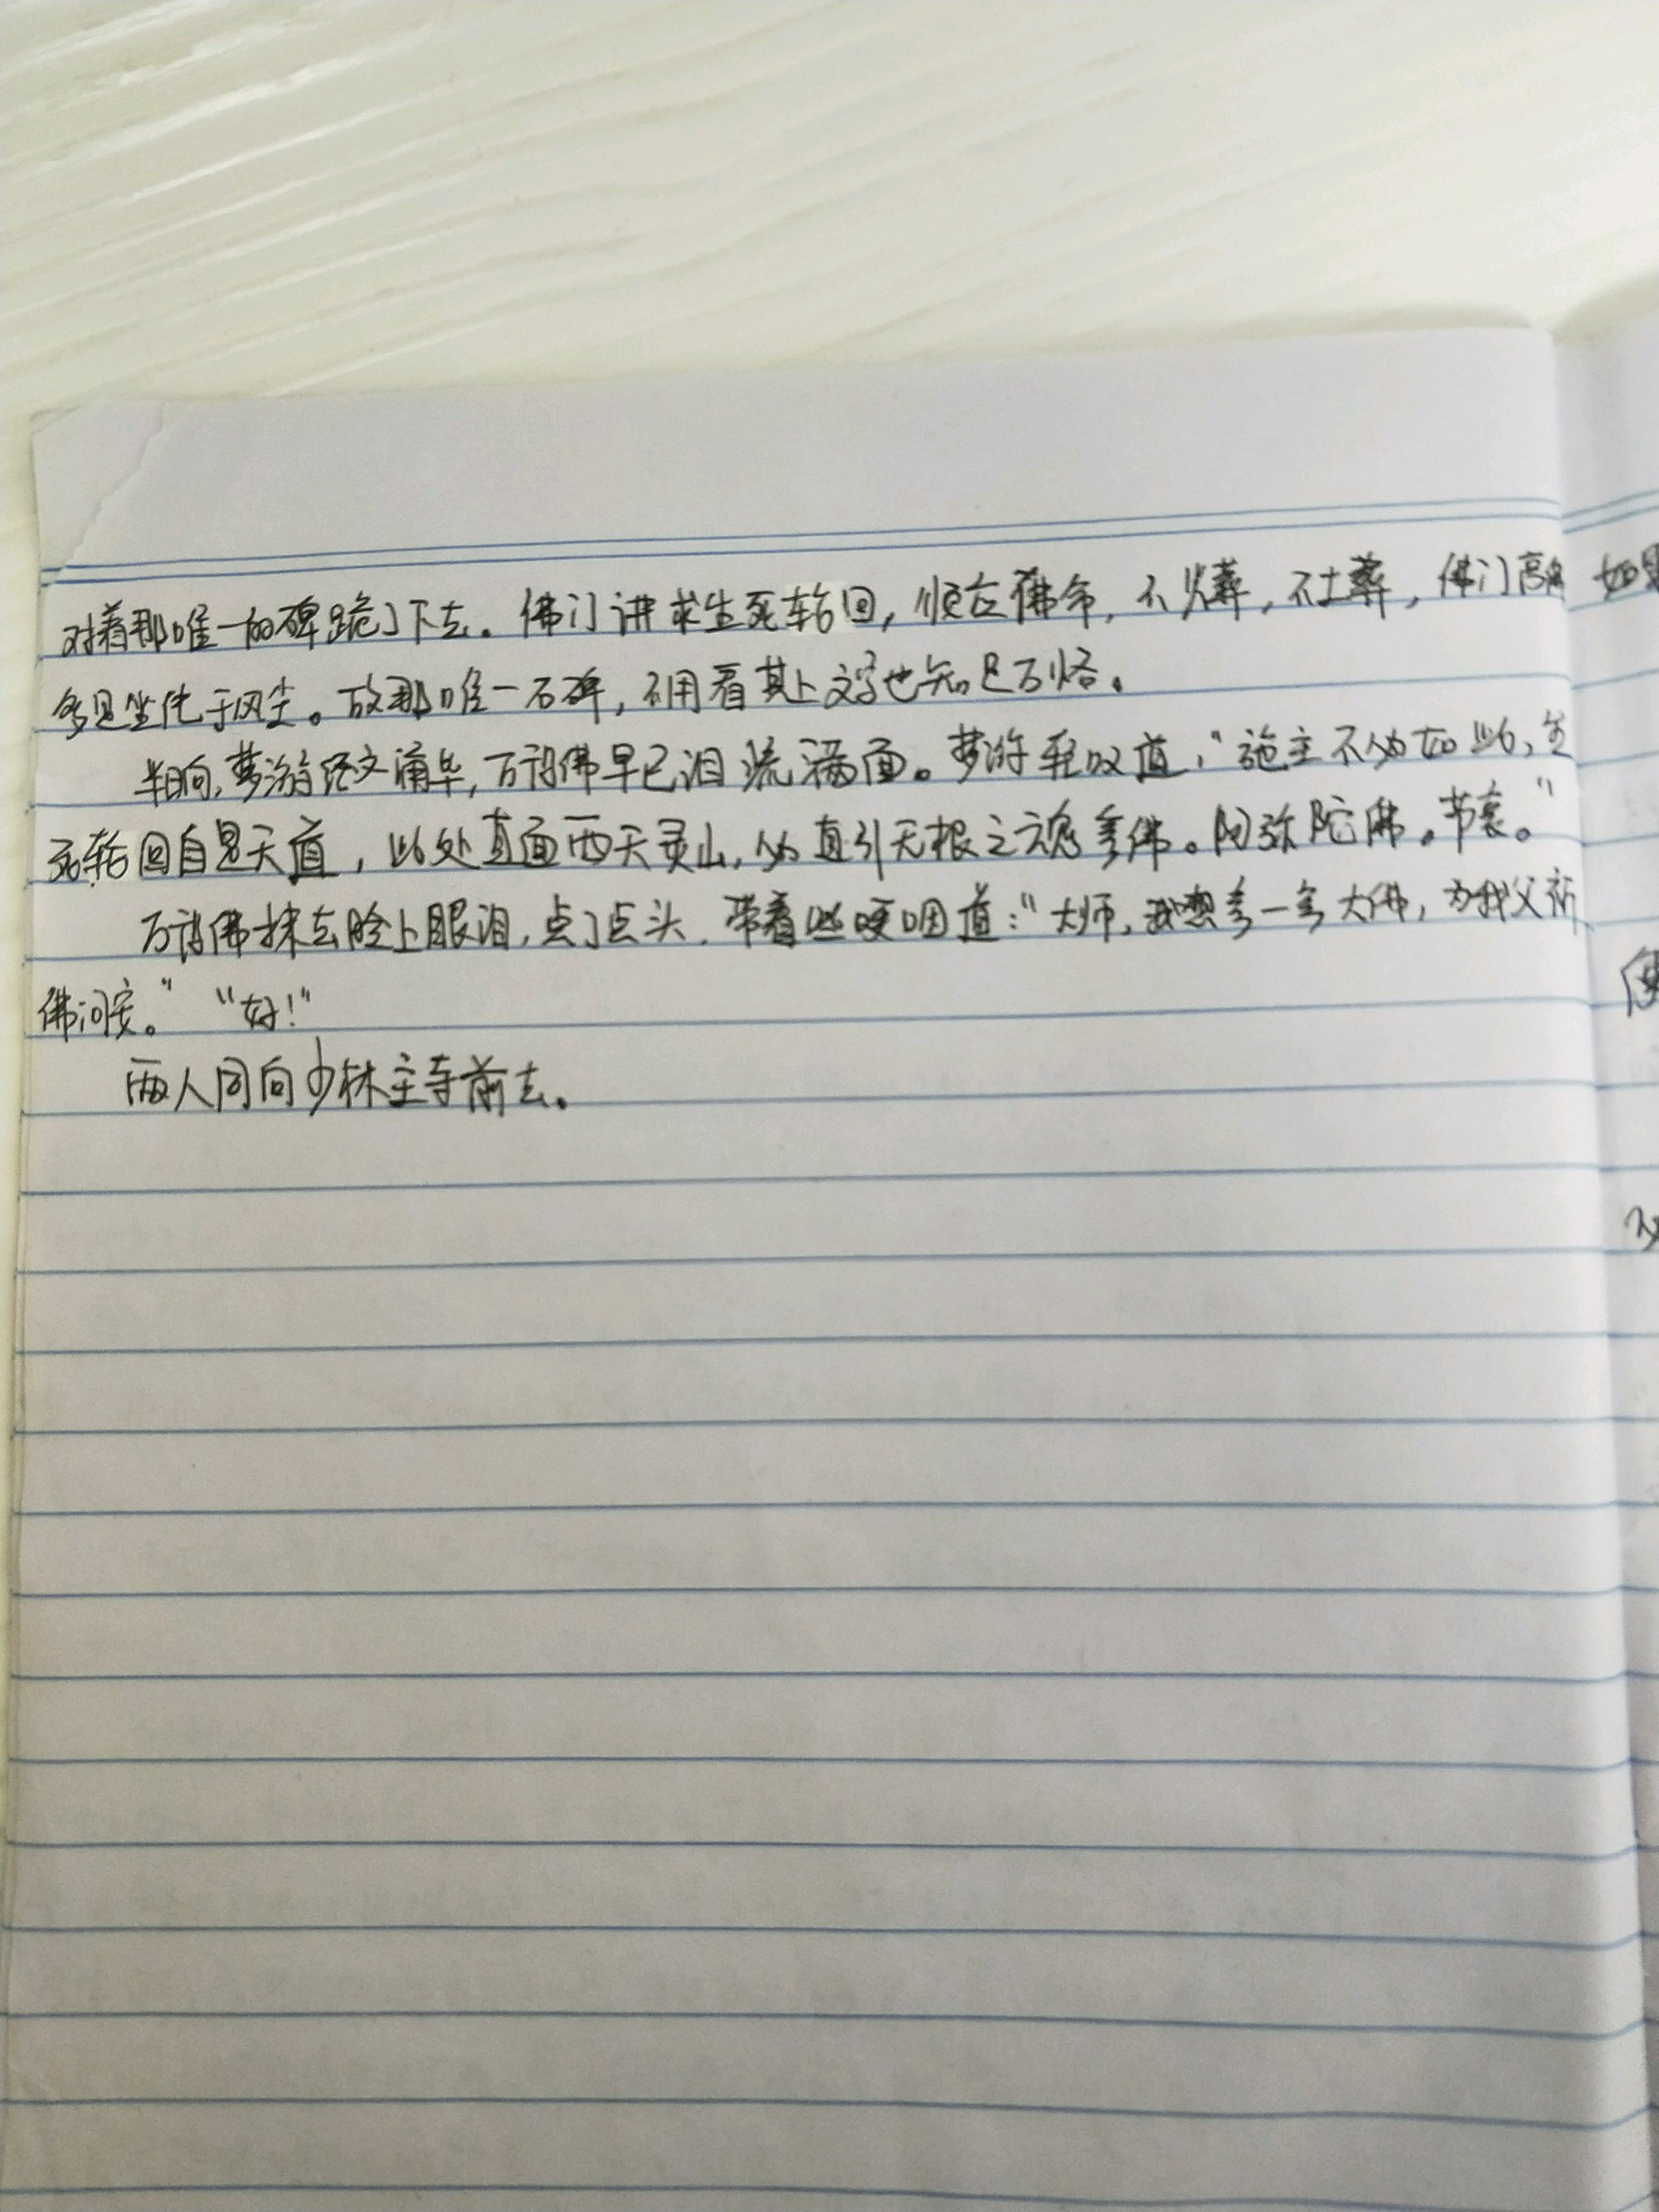 对着那唯一的碑跪了下去。佛门讲求生死轮回，顺在佛命，不火葬，不土葬，佛门高僧
多见坐化于风尘。故那唯一石碑，不用看其上文字也知是万恪。
半晌，梦游经文诵毕，万诗佛早已泪流满面。梦游轻叹道，“施主不必如此，生
死轮回自是天道，此处直面西天灵山，必直引无根之魂参佛。阿弥陀佛。节哀。”
万诗佛抹去脸上眼泪，点了点头，带着些哽咽道：“大师，我想参一参大佛，为我父祈
佛问安。” “好！”
两人同向少林主寺前去。